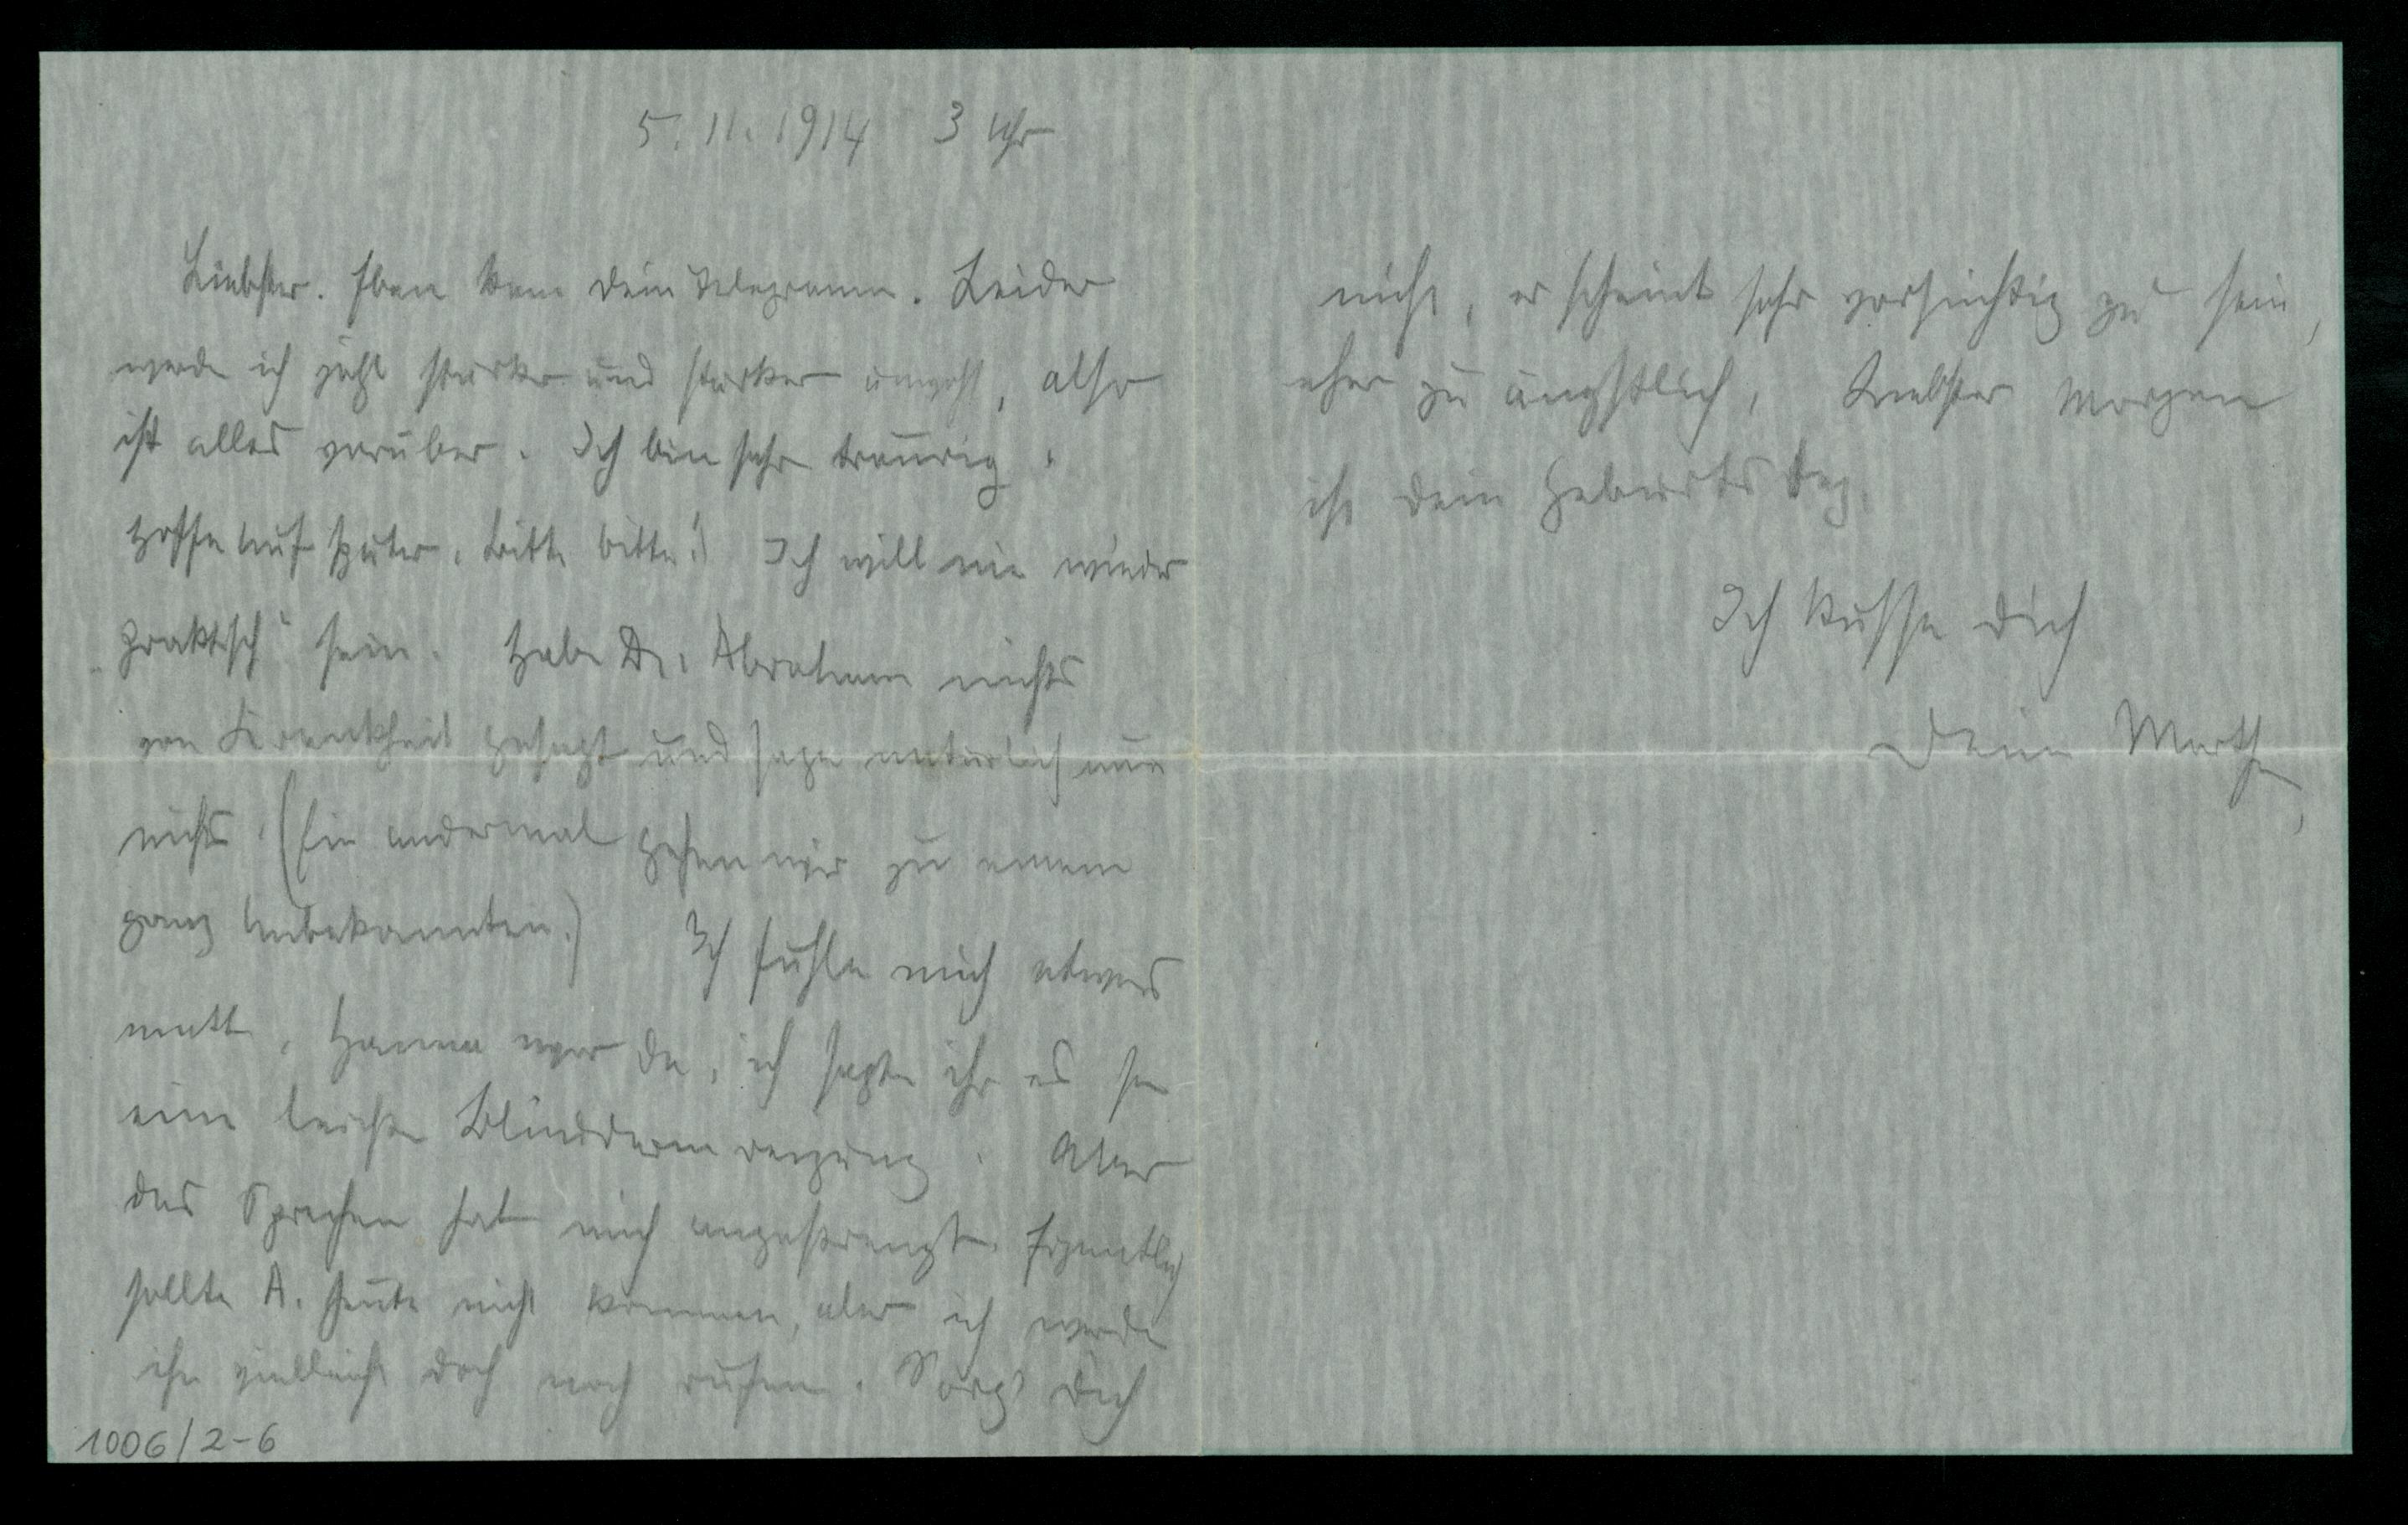 5. 11. 1914 3 Uhr
Liebster. Eben kam Dein Telegramm. Leider
werde ich jetzt starker und starker unwohl, also
ist alles vorüber. Ich bin sehr traurig.
Hoffe auf später, bitte bitte! Ich will nie wieder
„praktisch“ sein. Habe Dr. Abraham nichts
von Krankheit gesagt und sage natürlich nun
nichts. (Ein andermal gehen wir zu einem
ganz Unbekannten.) Ich fühle mich etwas
matt, Hanna war da, ich sagte ihr es sei
eine leichte Blinddarmreizung. Aber
das Sprechen hat mich angestrengt. Eigentlich
sollte A. heute nicht kommen, aber ich werde
ihn vielleicht doch noch rufen. Sorg' Dich
1006/2-6
nicht, er scheint sehr vorsichtig zu sein,
eher zu ängstlich, Liebster morgen
ist Dein Geburtstag.
Ich küsse Dich
Deine Martha